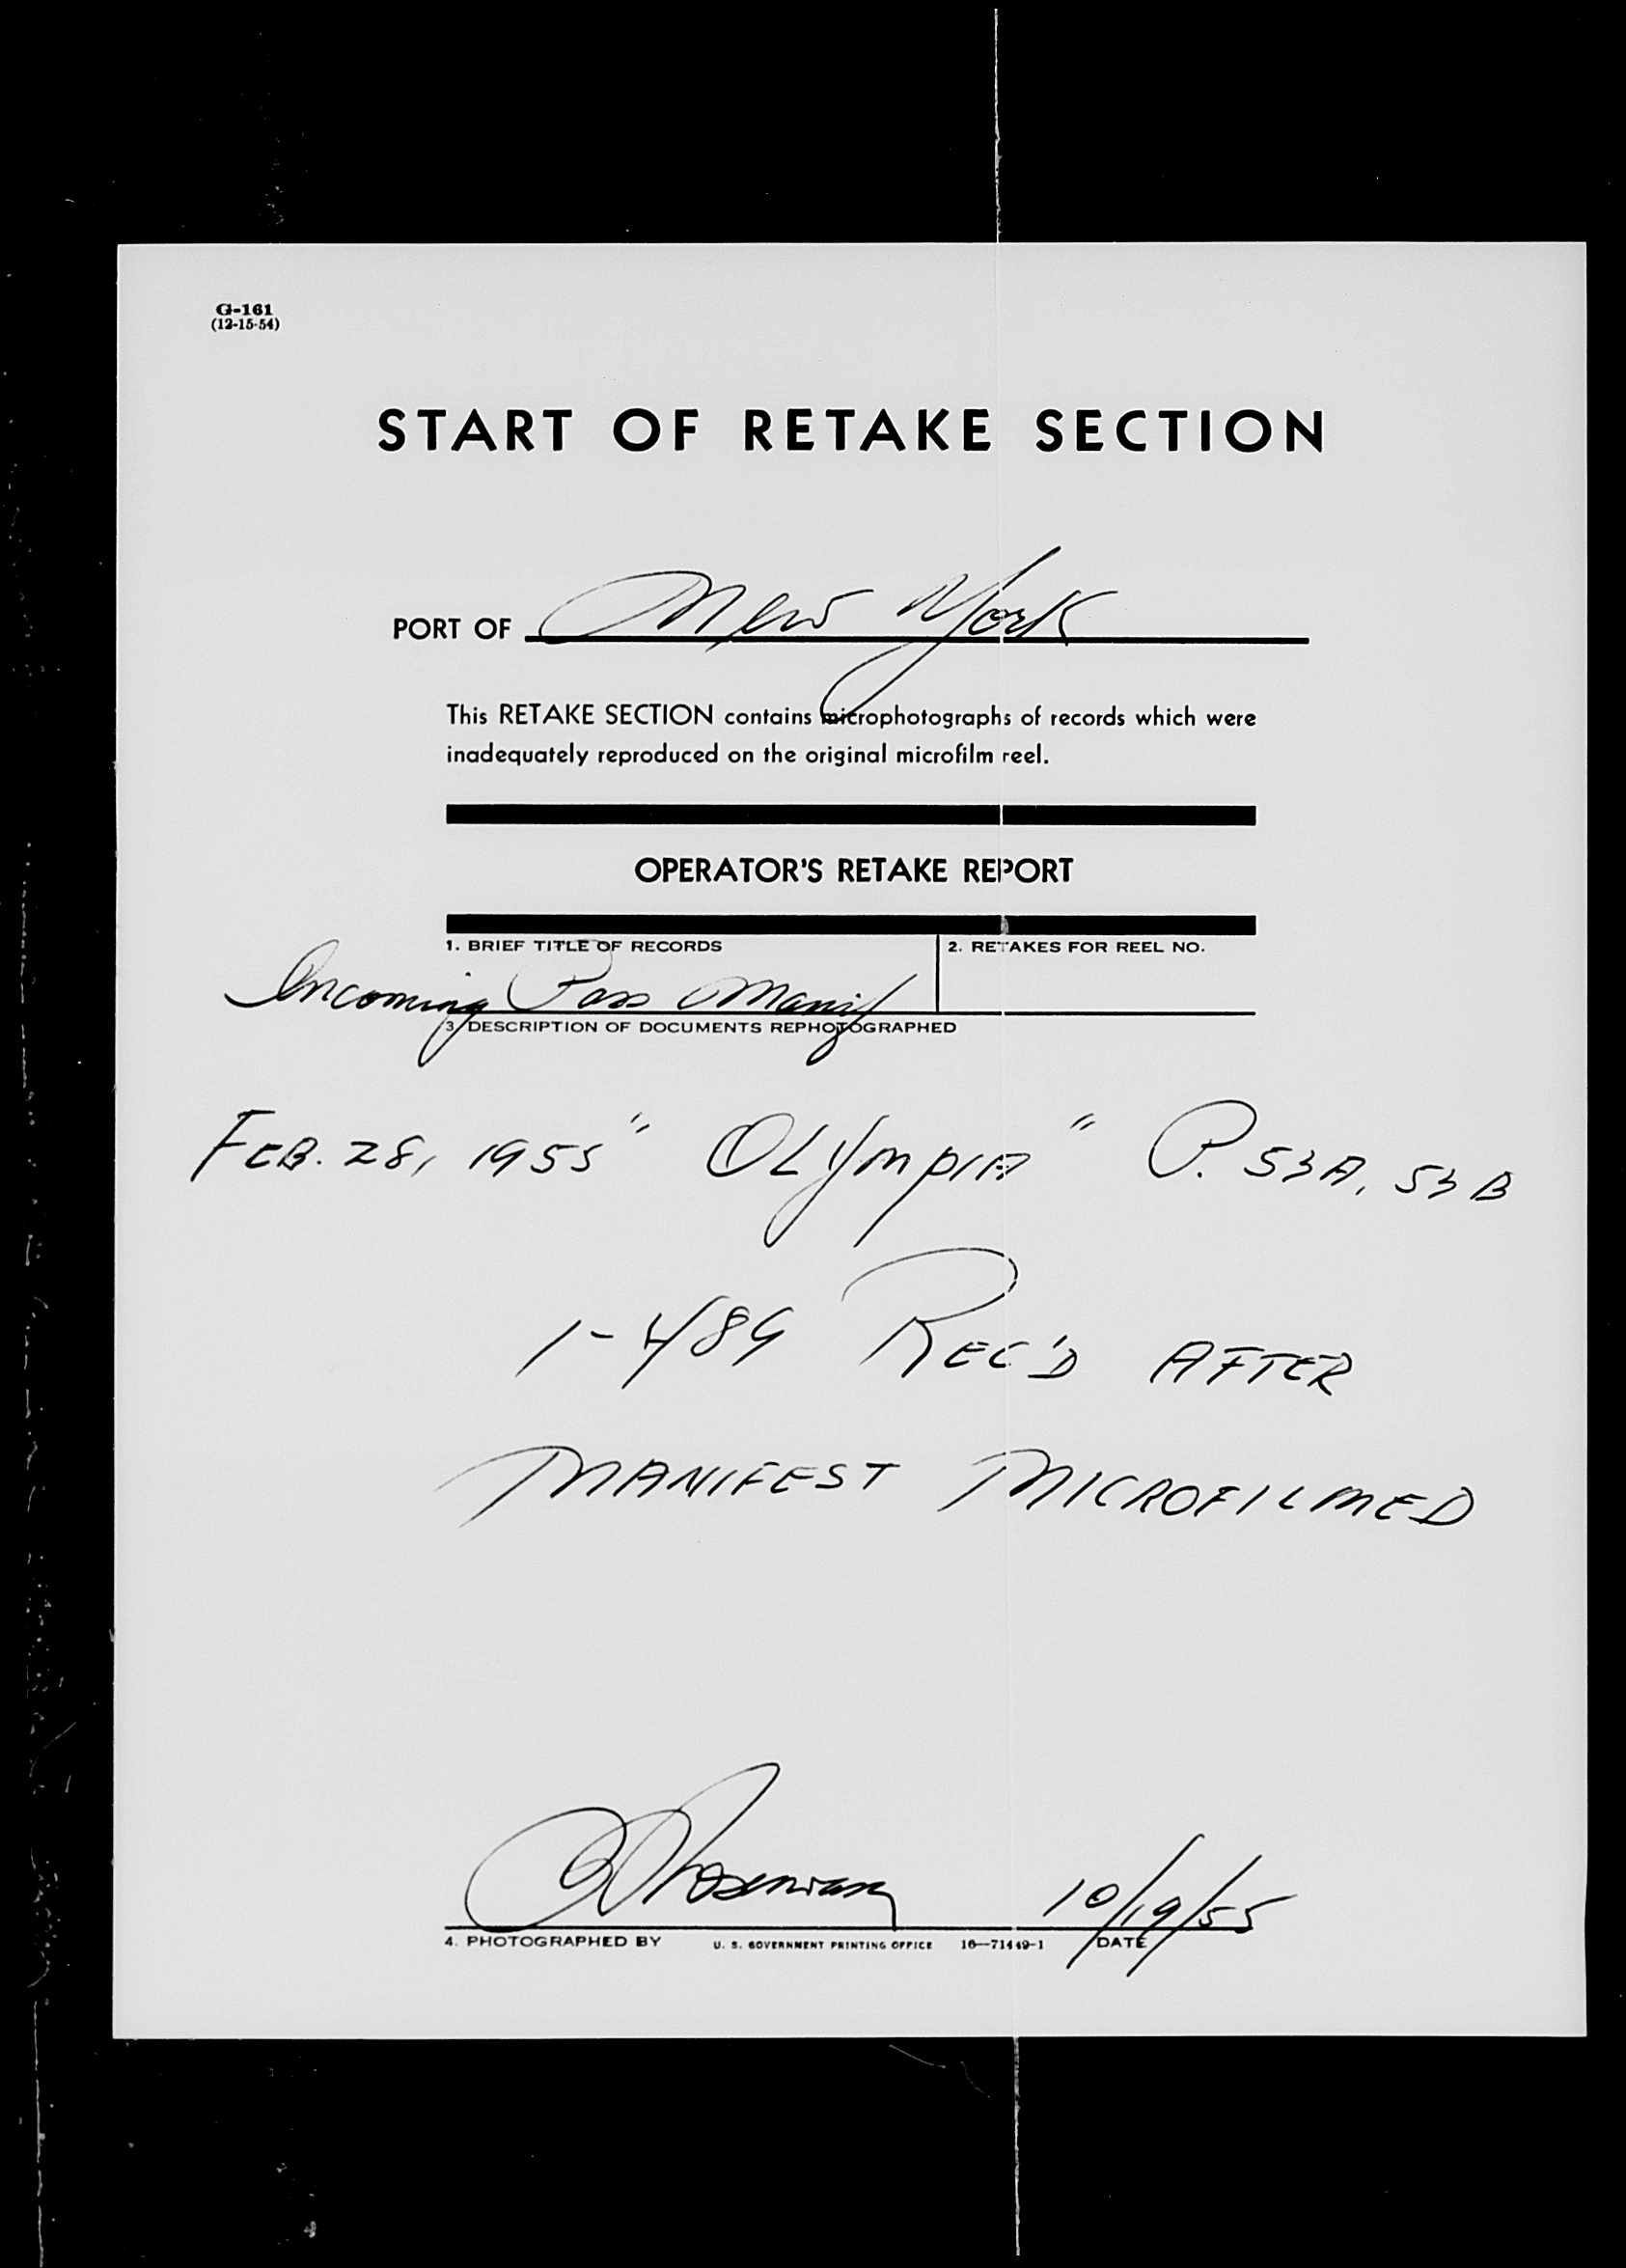 G-161
(12-15-54)
START OF RETAKE SECTION
PORT OF New York
This RETAKE SECTION contains microphotographs of records which were
inadequately reproduced on the original microfilm reel.
OPERATOR'S RETAKE REPORT
1. BRIEF TITLE OF RECORDS 2. RETAKES FOR REEL NO.
Incoming Pass Manif
3. DESCRIPTION OF DOCUMENTS REPHOTOGRAPHED
FEB. 28, 1955 " OLYMPIA " P. 53A, 53B
1-489 REC'D AFTER
MANIFEST MICROFILMED
10/19/55
4. PHOTOGRAPHED BY U. S. GOVERNMENT PRINTING OFFICE 16—71449-1 DATE